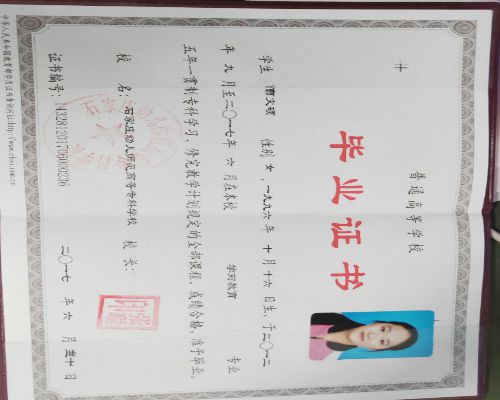 普通高等学校
毕业证书
学生 曹文硕 性别 女，一九九六年 十月 十六日生，于二〇一二
年 九月至二〇一七年 六月在本校 学前教育 专业
五年一贯制专科学习，修完教学计划规定的全部课程，成绩合格，准予毕业。
校 名：石家庄幼儿师范高等专科学校 校 长：
证书编号：143281201706000206 二〇一七 年 六 月 三十 日
中华人民共和国教育部学历证书查询网址:http://www.chsi.com.cn